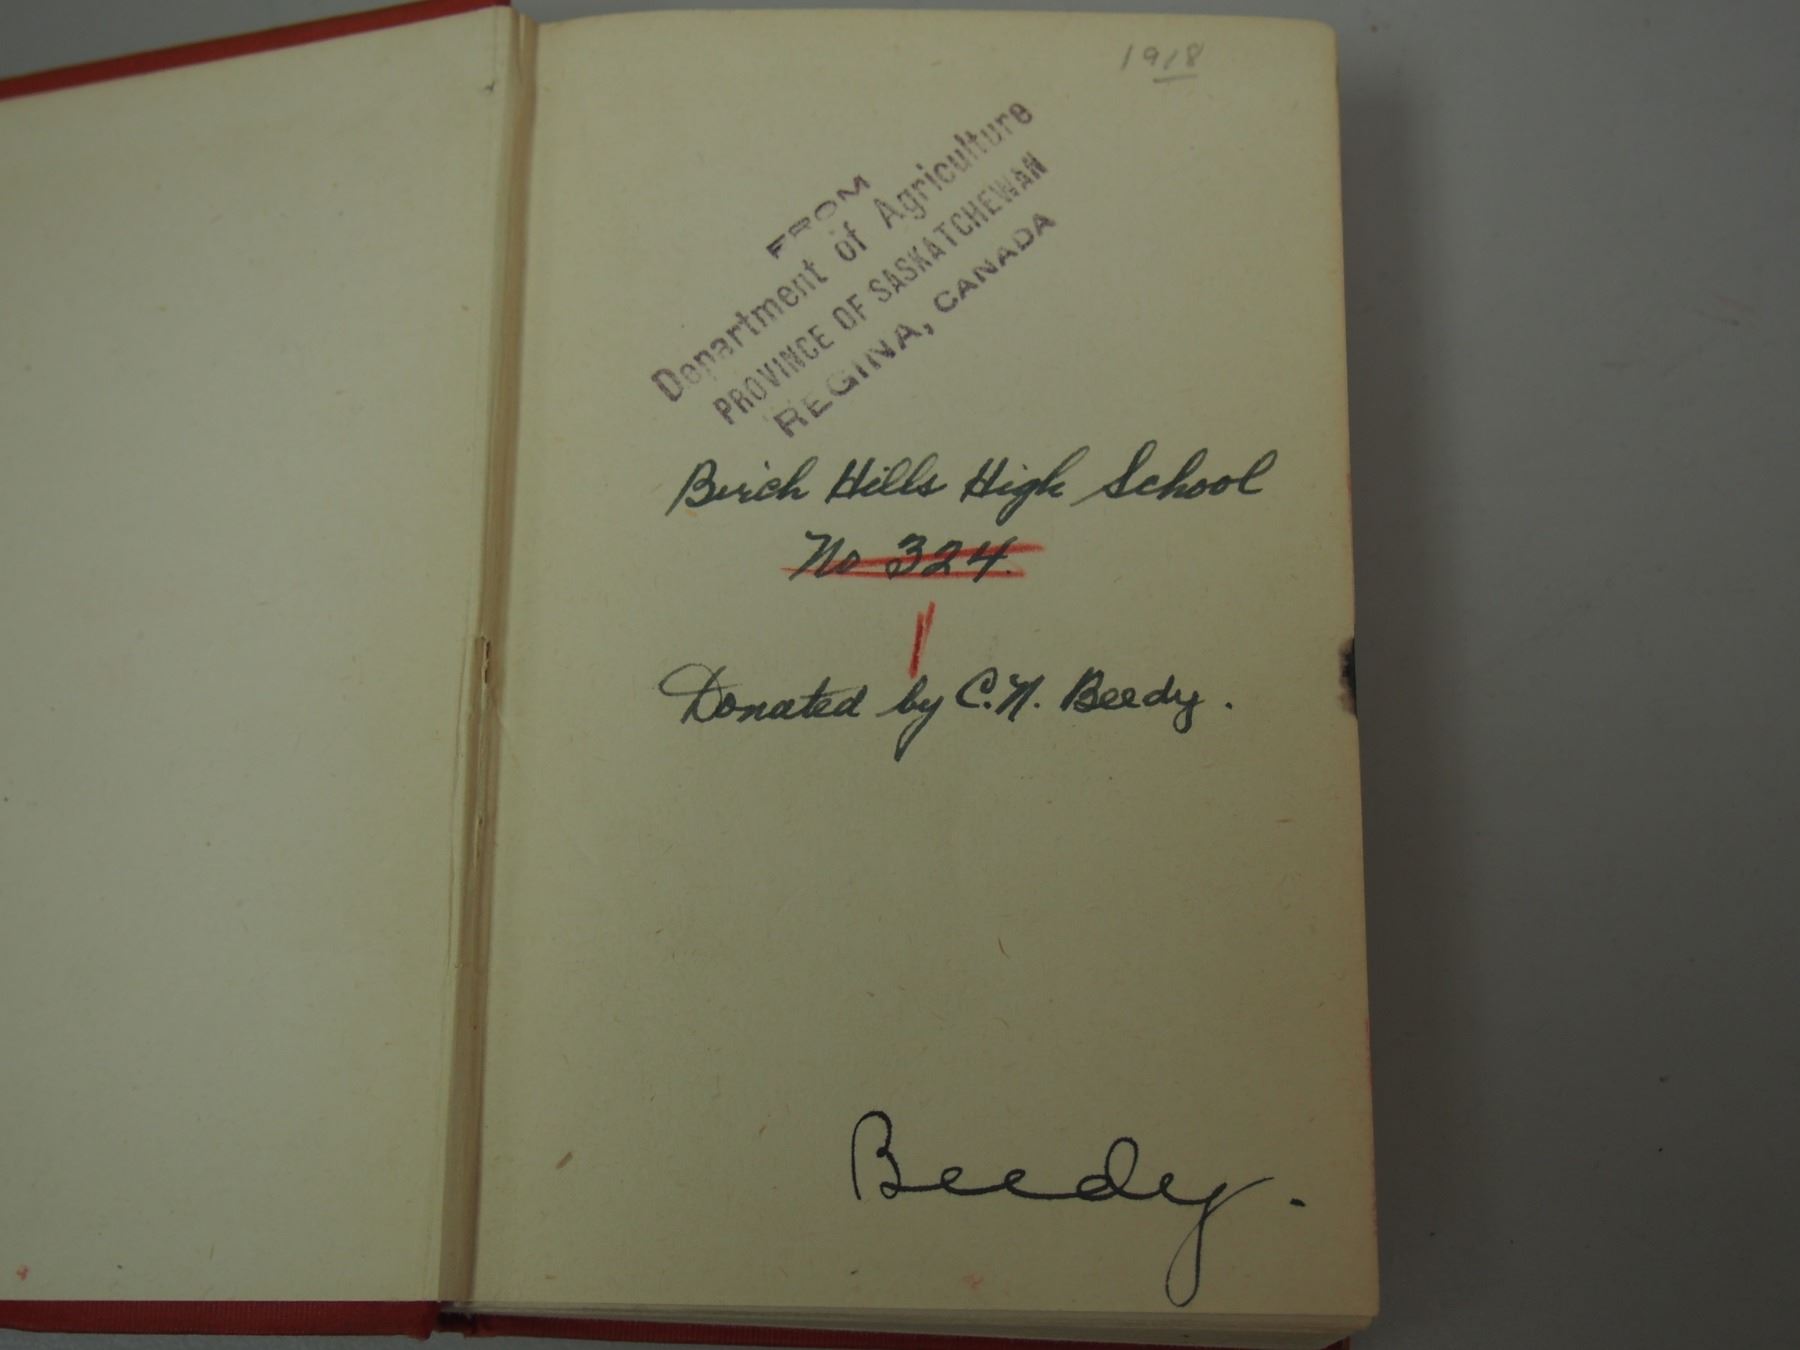 1918
FROM
Department of Agriculture
PROVINCE OF SASKATCHEWAN
REGINA, CANADA
Birch Hills High School
No 324.
1
Donated by C.N. Beedy.
Beedy.